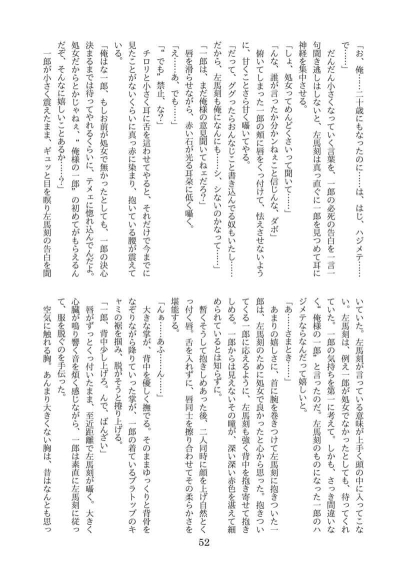 「お、俺……二十歳にもなったのに……は、はじ、ハジメテ……
で……」
だんだん小さくなっていく言葉を、一郎の必死の告白を一言一
句聞き逃しはしないと、左馬刻は真っ直ぐに一郎を見つめて耳に
神経を集中させる。
「しょ、処女ってめんどくさいって聞いて……」
「んな、誰が言ったか分かンねぇこと信じんな、ダボ」
俯いてしまった一郎の頬に唇をくっ付けて、怯えさせないよう
に、甘くことさら甘く囁いてやる。
「だって、ググったらおんなじこと書き込んでる奴もいたし……
だから、左馬刻も俺になんにも……シ、シないのかなって……」
「一郎は、まだ俺様の意見聞いてねェだろ？」
唇を滑らせながら、赤い石が光る耳朶に低く囁く。
「え……あ、でも……」
「〝でも〟禁止、な？」
チロリと小さく耳に舌を這わせてやると、それだけで今までに
見たことがないくらいに真っ赤に染まり、抱いている腰が震えて
いる。
「俺はな一郎、もしお前が処女で無かったとしても、一郎の決心
決まるまでは待ってやれるくらいに、テメェに惚れ込んでんだよ。
処女だからとかじゃねぇ、〝俺様の一郎〟の初めてがもらえるん
だぞ、そんなに嬉しいことあるか……？」
一郎が小さく震えたまま、ギュッと目を瞑り左馬刻の告白を聞
いていた。左馬刻が言っている意味が上手く頭の中に入ってこな
い。左馬刻は、例え一郎が処女でなかったとしても、待ってくれ
ていた。一郎の気持ちを第一に考えて。しかも、さっき間違いな
く、俺様の一郎〟と言ったのだ。左馬刻のものになった一郎のハ
ジメテならなんだって嬉しいと。
「あ……さまとき……」
あまりの嬉しさに、首に腕を巻きつけて左馬刻に抱きついた一
郎は、左馬刻のために処女で良かったと心から思った。抱きつい
てくる一郎に応えるように、左馬刻も強く背中を抱き寄せて抱き
しめる。一郎からは見えないその瞳が、深い深い赤色を湛えて細
められているとは知らずに。
暫くそうして抱きしめあった後、二人同時に顔を上げ自然とく
っ付く唇。舌を入れずに、唇同士を擦り合わせてその柔らかさを
堪能する。
「んぁ……あふ……ん……」
大きな掌が、背中を優しく撫でる。そのままゆっくりと背骨を
なぞりながら降りていった掌が、一郎の着ているブラトップのキ
ャミの裾を掴み、脱がそうと捲り上げる。
「一郎、背中少し上げろ。んで、ばんざい」
唇がずっとくっ付いたまま、至近距離で左馬刻が囁く。大きく
心臓が鳴り響く音を煩く感じながら、一郎は素直に左馬刻に従っ
て、服を脱ぐのを手伝った。
空気に触れる胸。あんまり大きくない胸は、昔はなんとも思っ
52